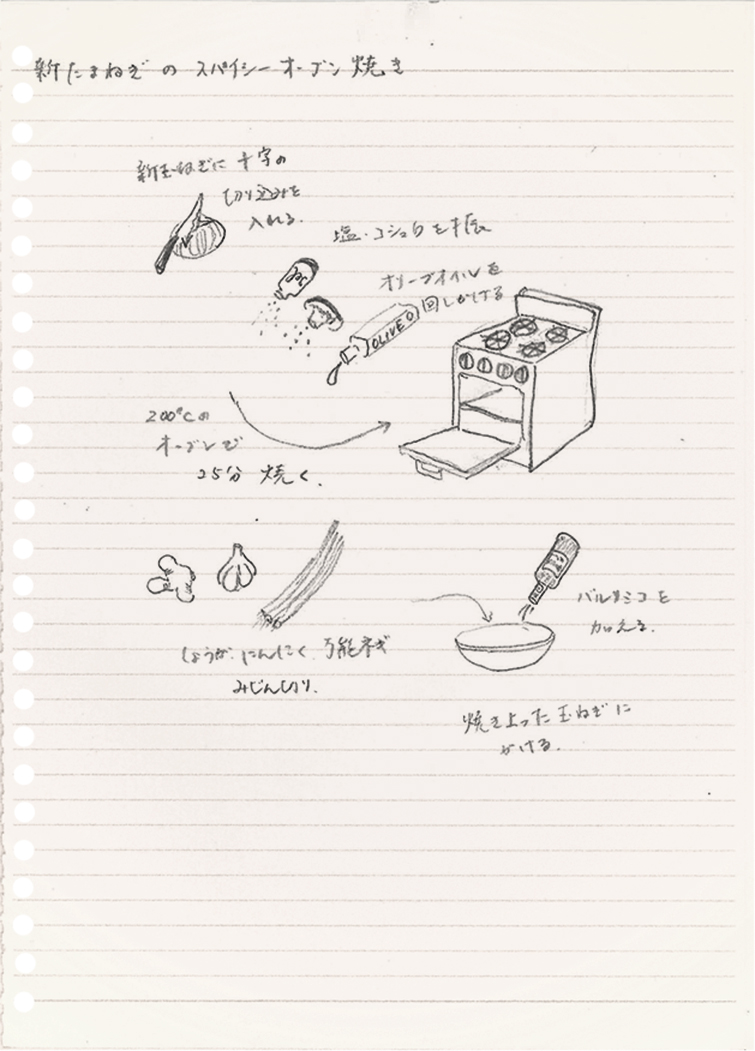 新たまねぎの スパイシーオーブン焼き
新玉ねぎに 十字の
切り込みを
入れる.
塩・コショウを振
オリーブオイルを
回しかける
OLIVE O
200℃の
オーブンで
25分 焼く.
しょうが. にんにく. 万能ネギ
みじん切り.
バルサミコを
加える.
焼き上った玉ねぎに
かける.